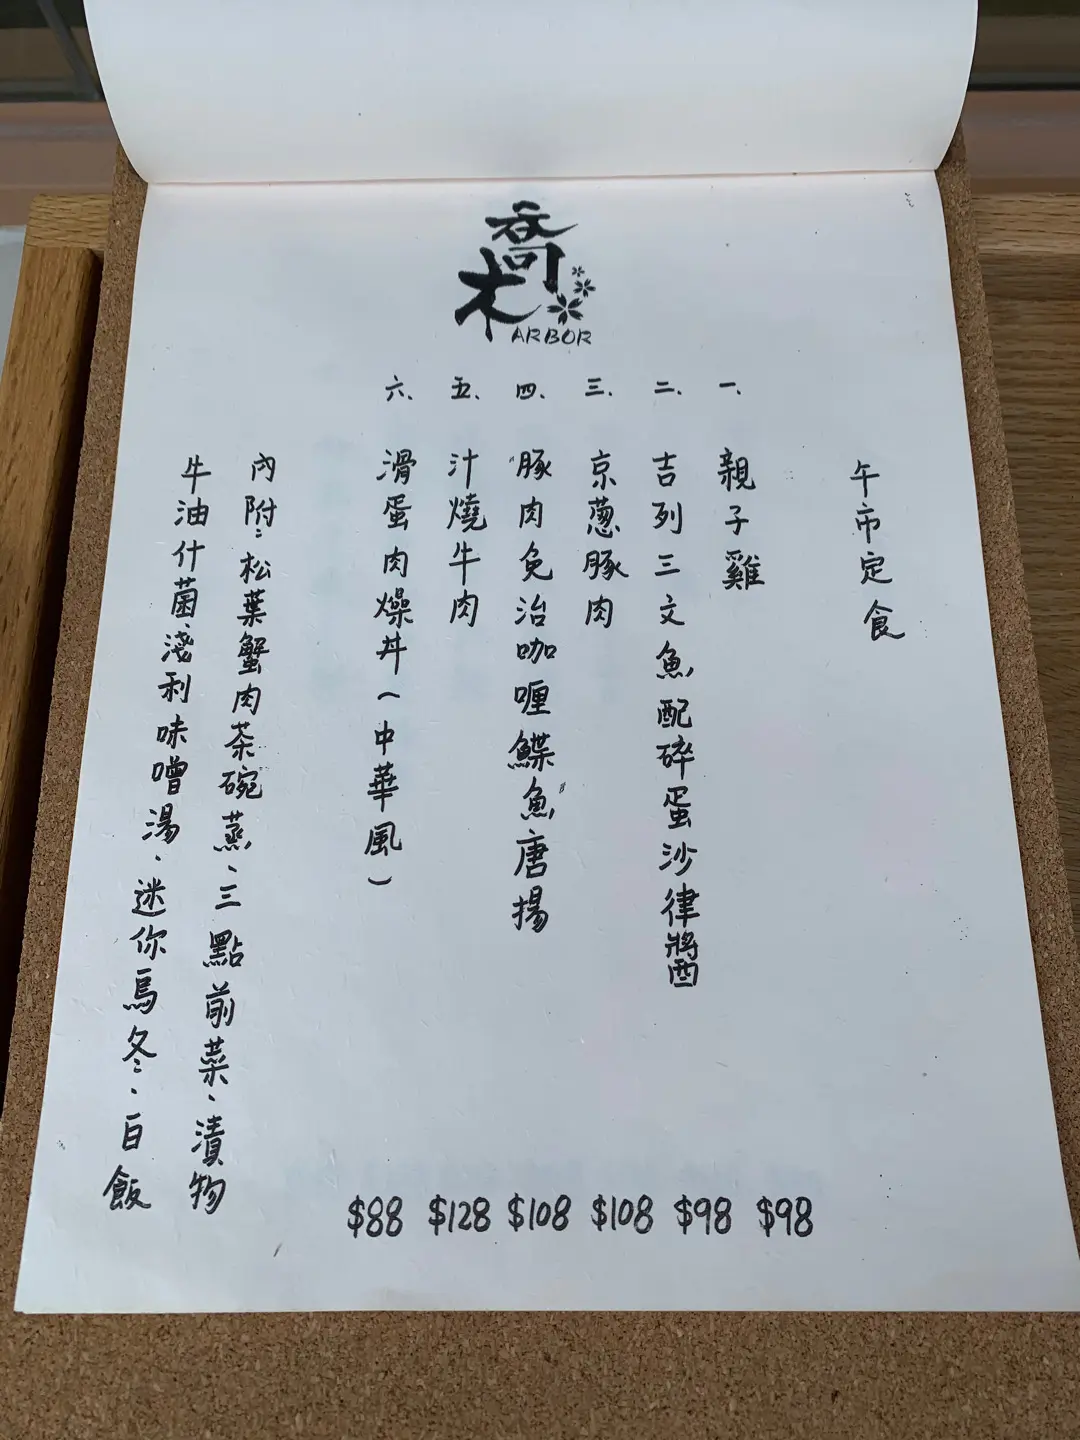 喬木
ARBOR
午市定食
一、親子雞 $98
二、吉列三文魚配碎蛋沙律醬 $98
三、京蔥豚肉 $108
四、"豚肉免治咖喱鰈魚"唐揚 $108
五、汁燒牛肉 $128
六、滑蛋肉燥丼(中華風) $88
內附:松葉蟹肉茶碗蒸、三點前菜、漬物
牛油什菌淺利味噌湯、迷你烏冬、白飯